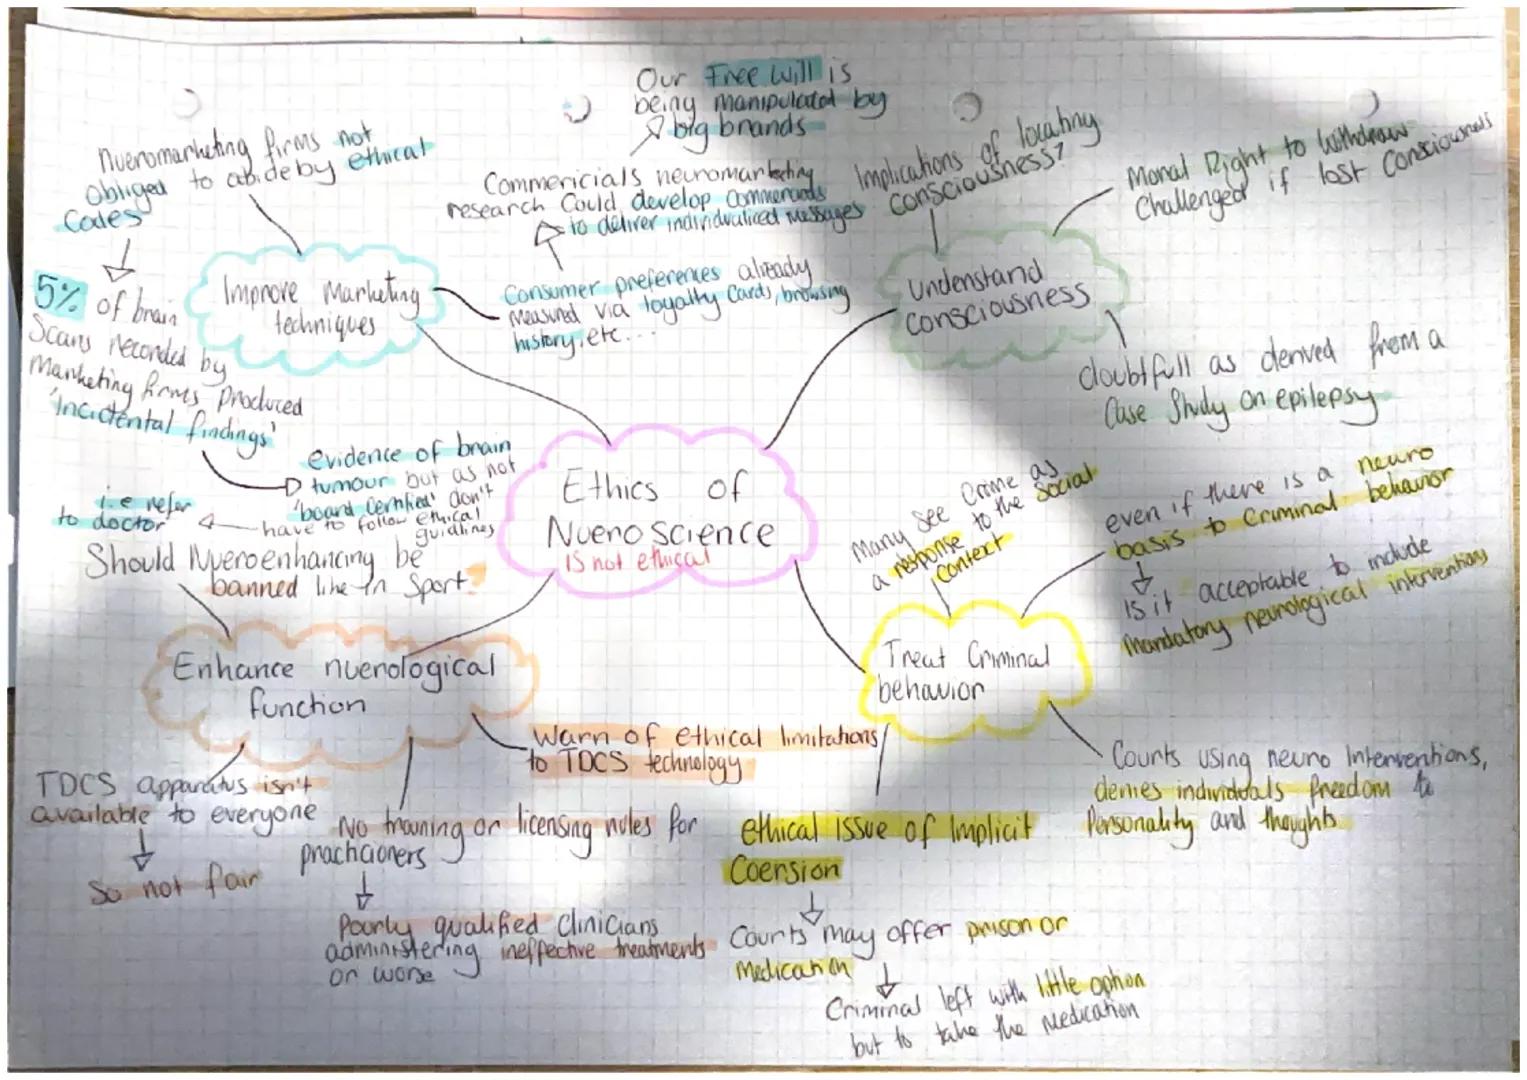 Ethics of
Nueroscience
is not ethical
Improve Marketing
techniques
Nueromarketing firms not
obliged to abide by ethical
Codes
5% of brain
Scans recorded by
Marketing firms produced
'incidental findings'
evidence of brain
tumour but as not
'board Certified' don't
have to follow ethical
guidlines
i.e refer
to doctor
Our Free Will is
being manipulated by
big brands
Commericials neuromarketing
research could develop commercials
to deliver individualised messages
Consumer preferences already
Measured via loyalty Cards, browsing
history, etc...
Understand
consciousness
Implications of locating
consciousness?
Moral Right to Withdraw
Challenged if lost Consciousness
doubtfull as derived from a
Case Study on epilepsy
Treat Criminal
behavior
Many see Crime as
a response to the Social
context
even if there is a neuro
basis to Criminal behavior
Is it acceptable to include
Mandatory neurological interventions
Courts using neuro Interventions,
denies individuals freedom to
Personality and thoughts
ethical issue of Implicit
Coersion
Courts may offer prison or
Medication
Criminal left with little option
but to take the Medication
Enhance nuerological
function
Should Nueroenhancing be
banned like in Sport
Warn of ethical limitations
to TDCS technology
No training or licensing rules for
practicioners
Poorly qualified Clinicians
administering ineffective treatments
or worse
TDCS apparatus isn't
available to everyone
So not fair